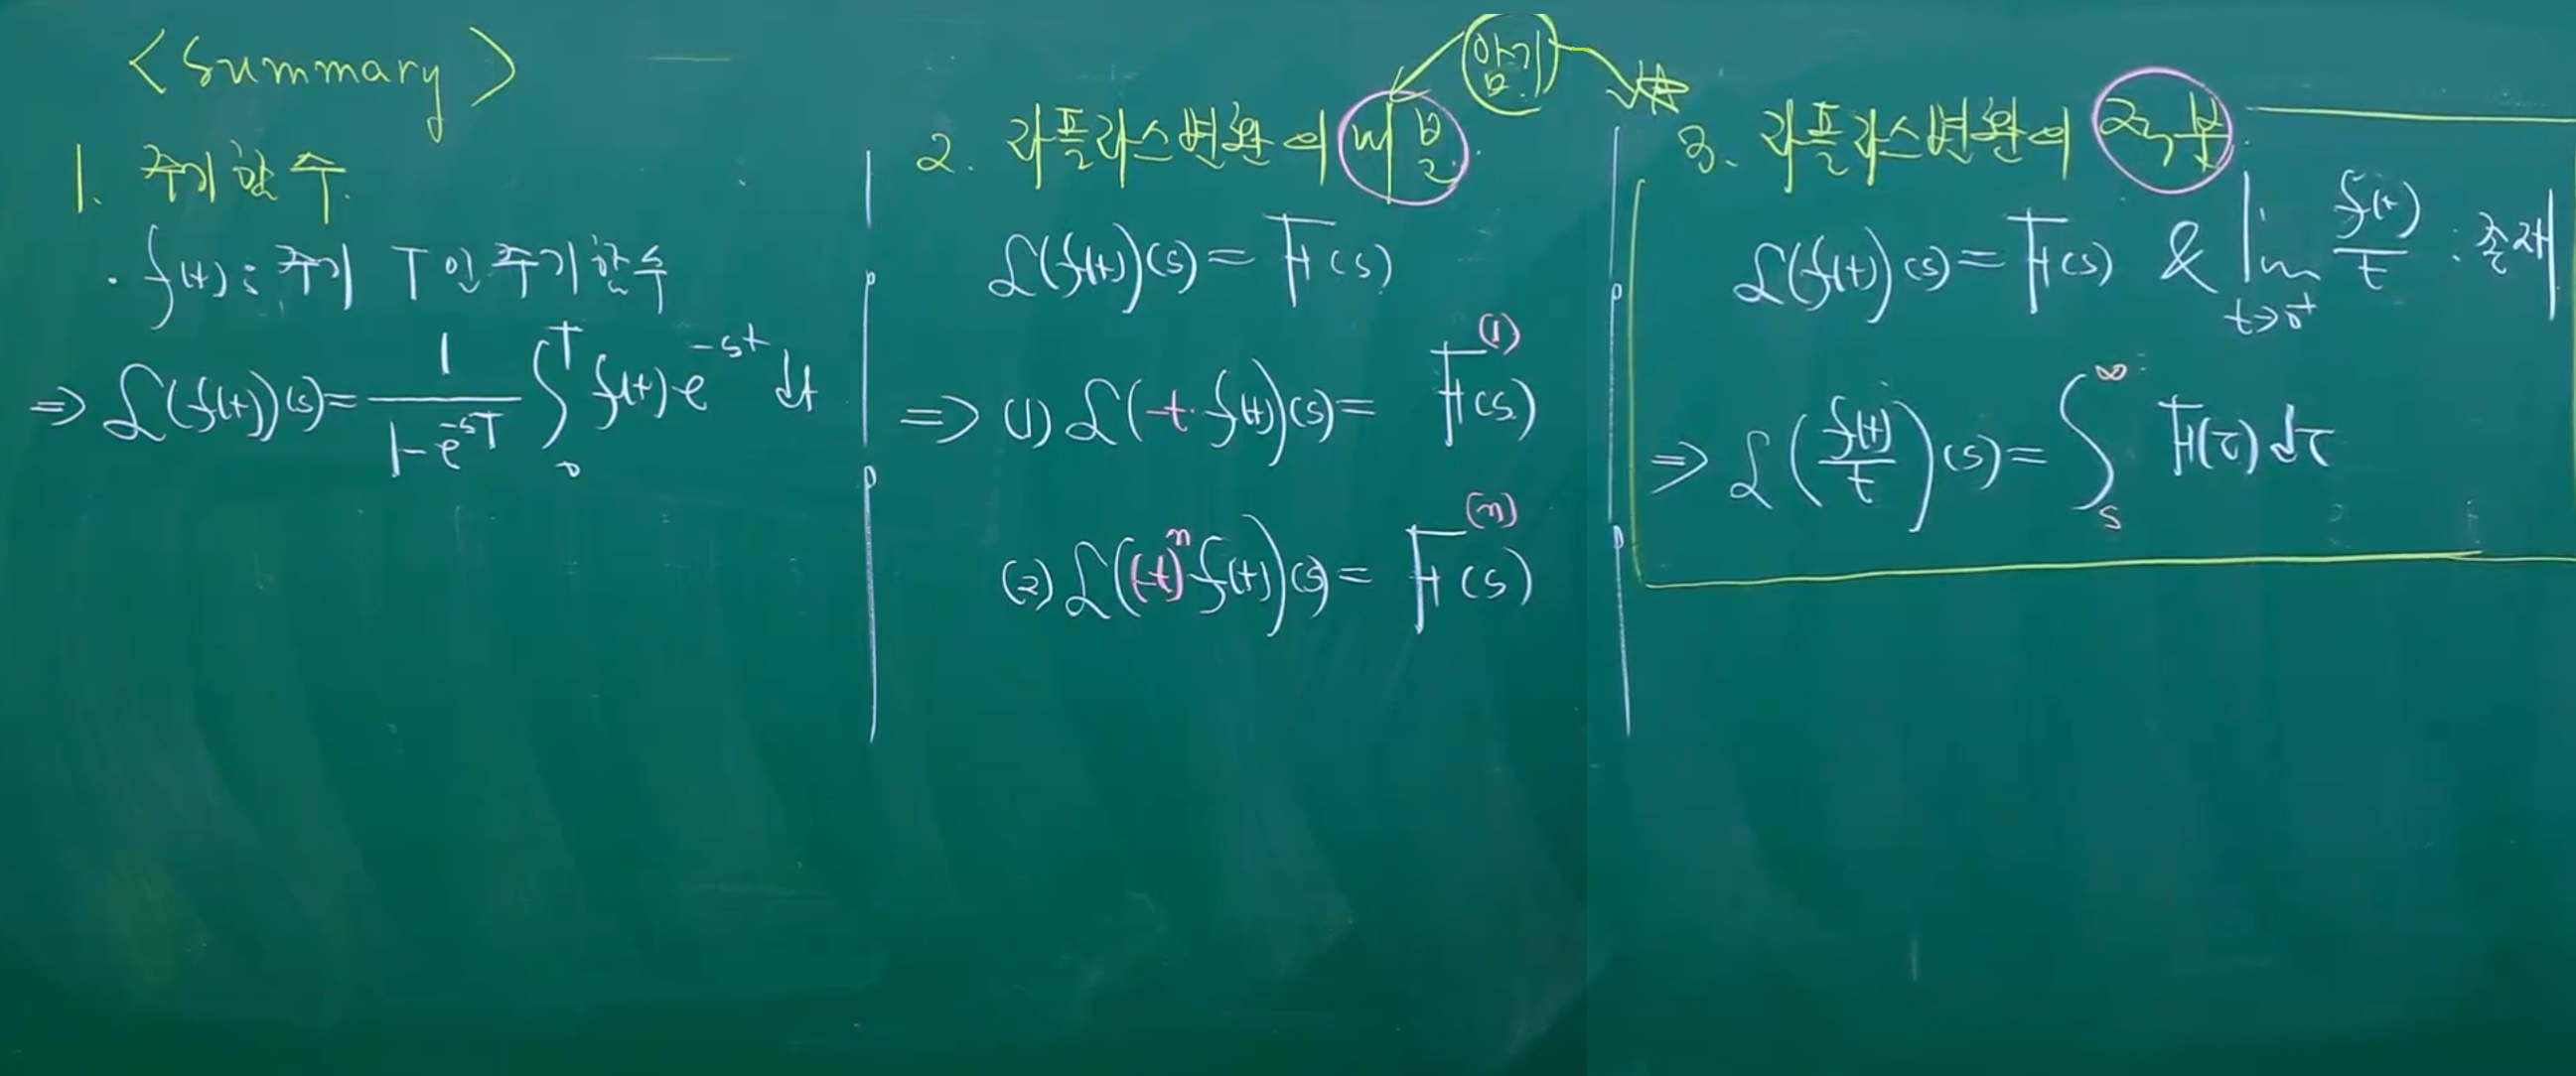 <Summary>
1. 주기함수
· f(t) : 주기 T인 주기함수
⇒ ℒ(f(t))(s) = 1/(1-e^{-sT}) ∫_0^T f(t)·e^{-st} dt
암기
2. 라플라스변환의 미분
ℒ(f(t))(s) = F(s)
⇒ (1) ℒ(-t·f(t))(s) = F^{(1)}(s)
(2) ℒ((-t)^n f(t))(s) = F^{(n)}(s)
3. 라플라스변환의 적분
ℒ(f(t))(s) = F(s) & lim_{t→0^+} f(t)/t : 존재
⇒ ℒ(f(t)/t)(s) = ∫_s^∞ F(τ)dτ